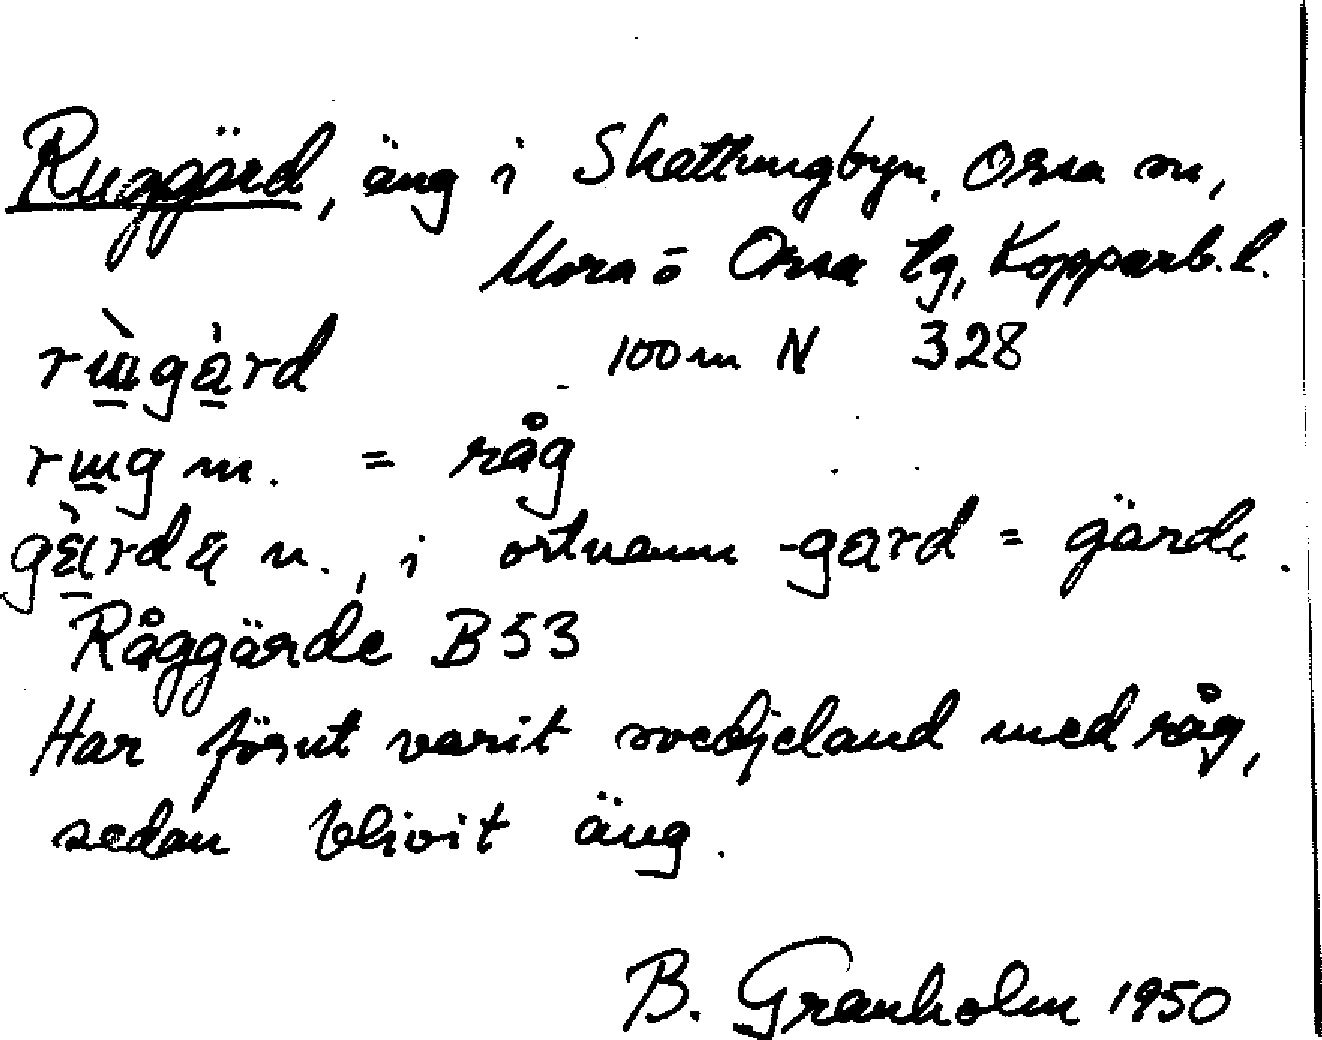 Ruggärd, äng i Skattungbyn, Orsa sn,
Mora o Orsa tg, Kopparb. l.
100 m N 328
m. = råg
n., i ortnamn -gard = gärde.
Råggärde B 53
Har förut varit svedjeland med råg,
sedan blivit äng.
B. Granholm 1950